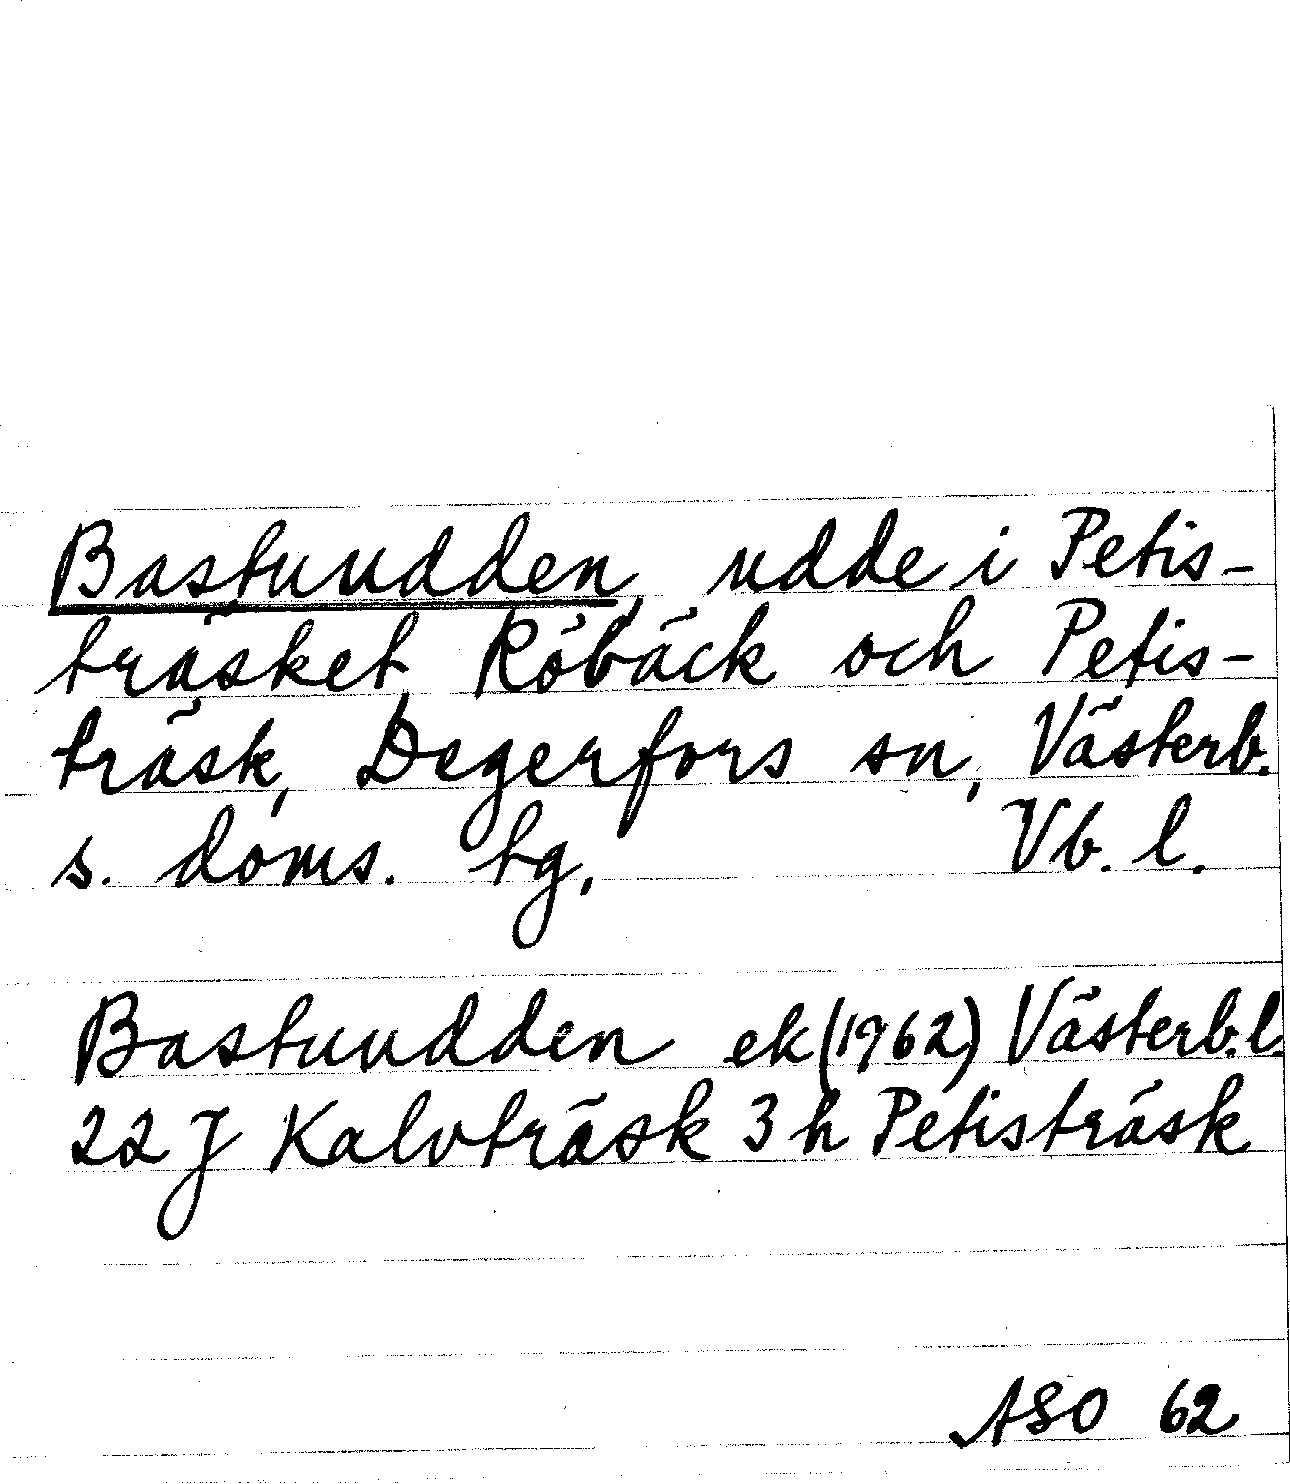 Bastuudden, udde i Petis-
träsket, Röbäck och Petis-
träsk, Degerfors sn, Västerb.
s. doms. tg, Vb. l.
Bastuudden ek (1962) Västerb. l.
22 J Kalvträsk 3 h Petisträsk
ASO 62